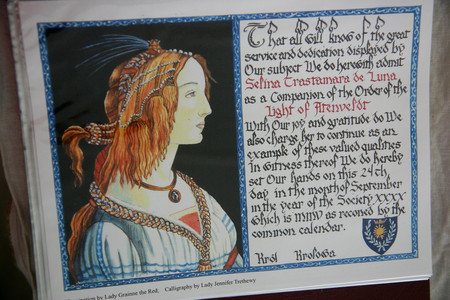 That all Gill know of the great
service and dedication displayed by
Our subject We do herewith admit
Selina Trastamara de Luna
as a Companion of the Order of the
Light of Atenveldt
With Our joy and gratitude do We
also charge her to continue as an
example of these valued qualities
In witness thereof We do hereby
set Our hands on this 24th
day in the month of September
in the year of the Society XXXX
Which is MMV as reconed by the
common calendar.
by Lady Grainne the Red, Calligraphy by Lady Jennifer Trethewy